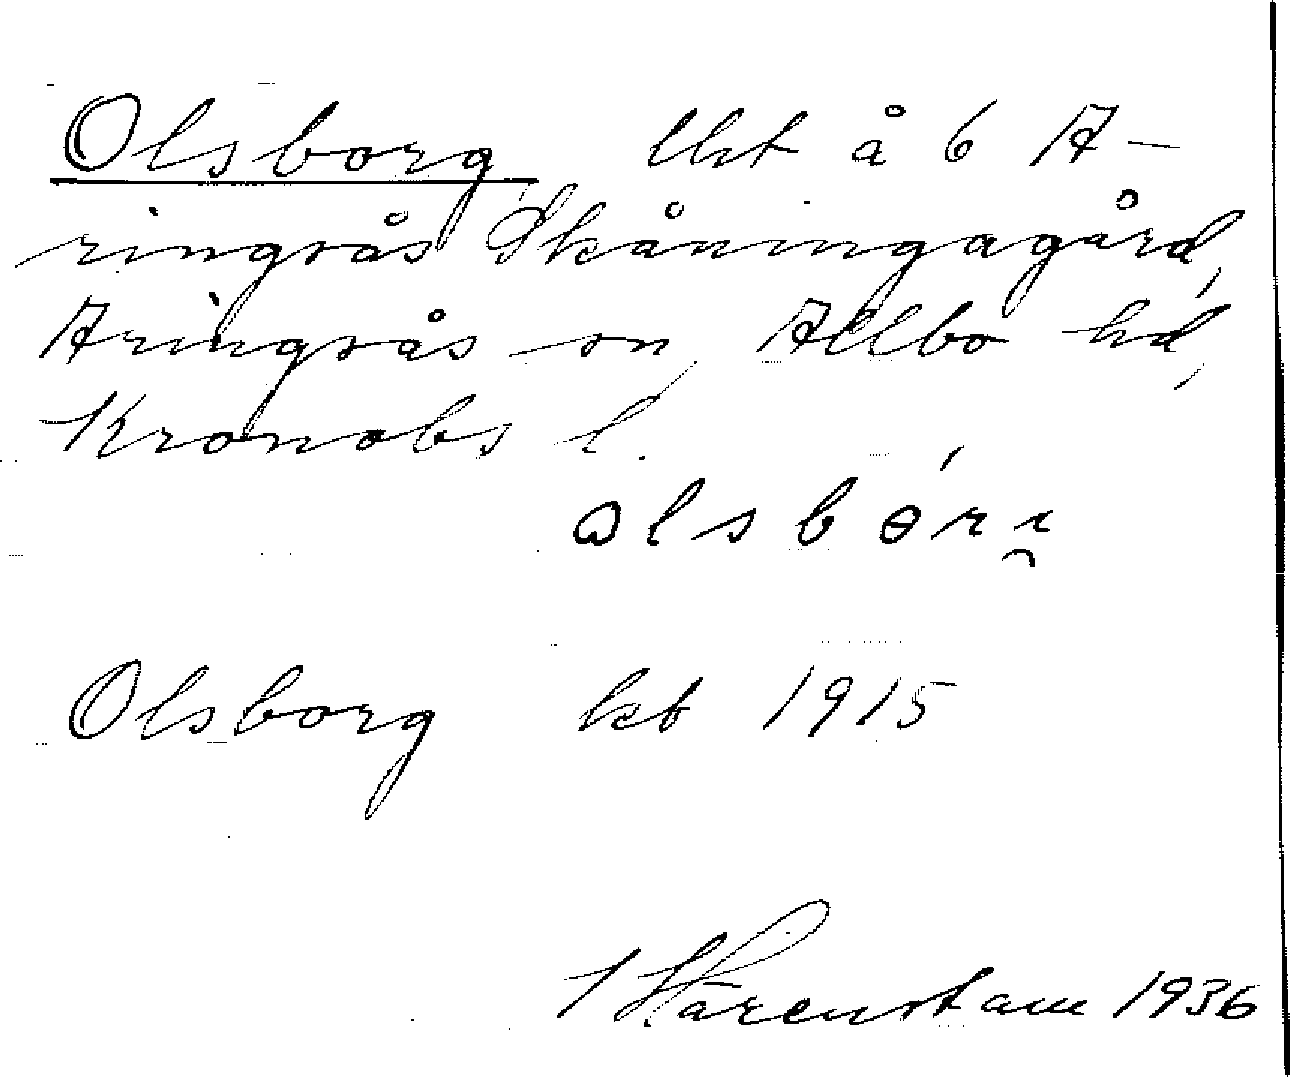 Olsborg lht å 6 A-
ringsås Skåningagård,
Aringsås sn, Allbo hd,
Kronobs l.
ɷlsbɵ́rɪ̯
Olsborg kb 1915
Kårenstam 1936